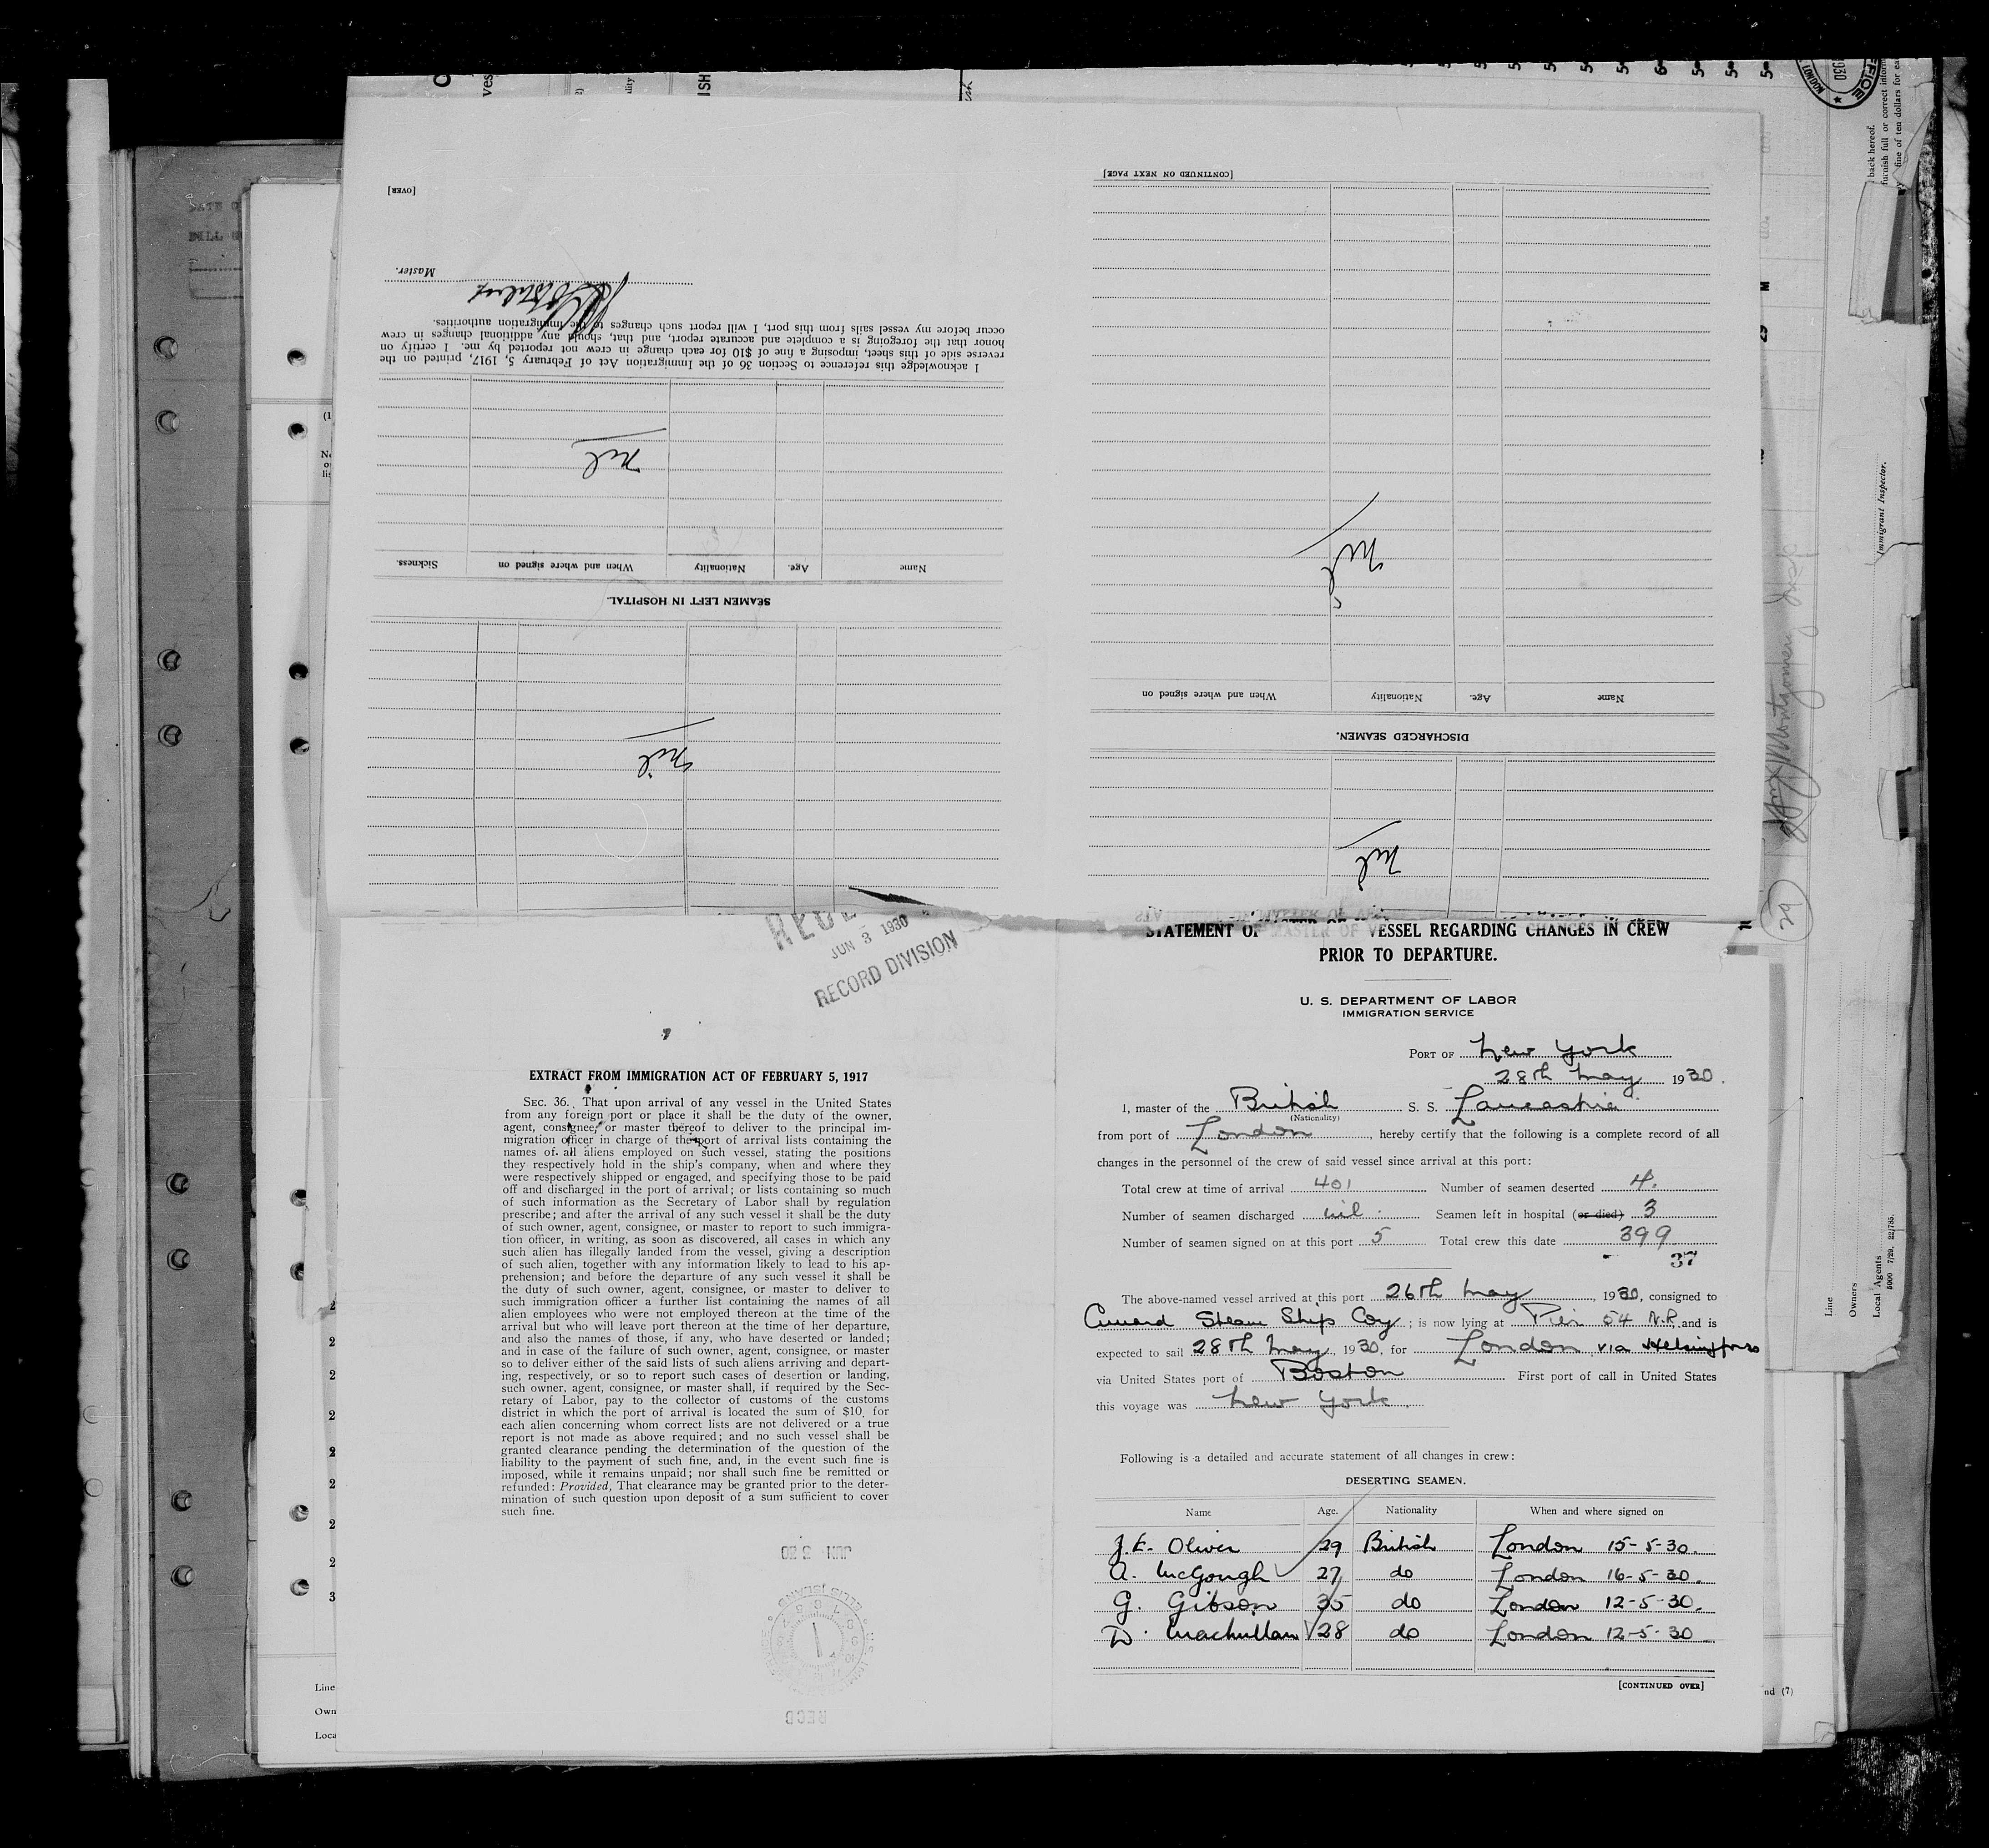 [OVER]
Master.
occur before my vessel sails from this port, I will report such changes to the immigration authorities.
honor that the foregoing is a complete and accurate report, and that, should any additional changes in crew
reverse side of this sheet, imposing a fine of $10 for each change in crew not reported by me. I certify on
I acknowledge this reference to Section 36 of the Immigration Act of February 5, 1917, printed on the
nil
Name Age. Nationality When and where signed on Sickness.
SEAMEN LEFT IN HOSPITAL.
nil
[CONTINUED ON NEXT PAGE]
nil
Name Age. Nationality When and where signed on
DISCHARGED SEAMEN.
nil
JUN 3 1930
RECORD DIVISION
EXTRACT FROM IMMIGRATION ACT OF FEBRUARY 5, 1917
SEC. 36. That upon arrival of any vessel in the United States
from any foreign port or place it shall be the duty of the owner,
agent, consignee, or master thereof to deliver to the principal im-
migration officer in charge of the port of arrival lists containing the
names of all aliens employed on such vessel, stating the positions
they respectively hold in the ship's company, when and where they
were respectively shipped or engaged, and specifying those to be paid
off and discharged in the port of arrival; or lists containing so much
of such information as the Secretary of Labor shall by regulation
prescribe; and after the arrival of any such vessel it shall be the duty
of such owner, agent, consignee, or master to report to such immigra-
tion officer, in writing, as soon as discovered, all cases in which any
such alien has illegally landed from the vessel, giving a description
of such alien, together with any information likely to lead to his ap-
prehension; and before the departure of any such vessel it shall be
the duty of such owner, agent, consignee, or master to deliver to
such immigration officer a further list containing the names of all
alien employees who were not employed thereon at the time of the
arrival but who will leave port thereon at the time of her departure,
and also the names of those, if any, who have deserted or landed;
and in case of the failure of such owner, agent, consignee, or master
so to deliver either of the said lists of such aliens arriving and depart-
ing, respectively, or so to report such cases of desertion or landing,
such owner, agent, consignee, or master shall, if required by the Sec-
retary of Labor, pay to the collector of customs of the customs
district in which the port of arrival is located the sum of $10 for
each alien concerning whom correct lists are not delivered or a true
report is not made as above required; and no such vessel shall be
granted clearance pending the determination of the question of the
liability to the payment of such fine, and, in the event such fine is
imposed, while it remains unpaid; nor shall such fine be remitted or
refunded: Provided, That clearance may be granted prior to the deter-
mination of such question upon deposit of a sum sufficient to cover
such fine.
RECD
STATEMENT OF MASTER OF VESSEL REGARDING CHANGES IN CREW
PRIOR TO DEPARTURE.
U. S. DEPARTMENT OF LABOR
IMMIGRATION SERVICE
PORT OF New York
28th May 1930.
I, master of the British S. S. Lancastria
(Nationality)
from port of London, hereby certify that the following is a complete record of all
changes in the personnel of the crew of said vessel since arrival at this port:
Total crew at time of arrival 401 Number of seamen deserted 4.
Number of seamen discharged nil. Seamen left in hospital (or died) 3
Number of seamen signed on at this port 5 Total crew this date 399
37
The above-named vessel arrived at this port 26th May, 1930, consigned to
Cunard Steam Ship Coy; is now lying at Pier 54 N.R. and is
expected to sail 28th May, 1930, for London via Helsingfors
via United States port of Boston First port of call in United States
this voyage was New York.
Following is a detailed and accurate statement of all changes in crew:
DESERTING SEAMEN.
Name Age. Nationality When and where signed on
J.E. Oliver 29 British London 15-5-30.
A. McGough 27 do London 16-5-30.
G. Gibson 35 do London 12-5-30.
D. MacMullan 28 do London 12-5-30
[CONTINUED OVER]
back hereof.
furnish full or correct inform
fine of ten dollars for ea
Immigrant Inspector.
29
Line
Owners
Local Agents
Line
Own
Loca
nd (7)